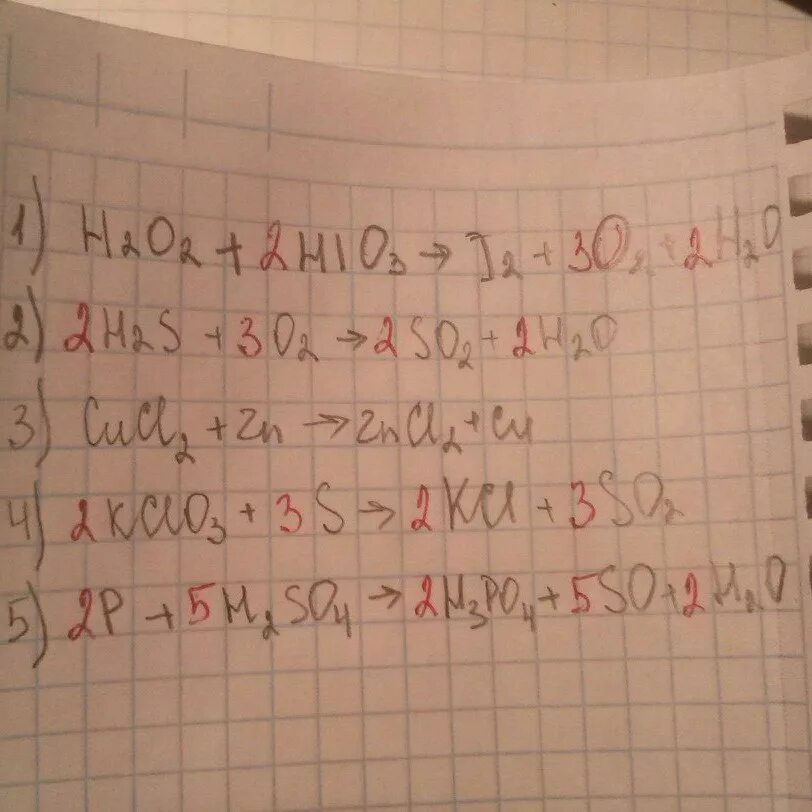 1) H₂O₂ + 2HIO₃ → I₂ + 3O₂ + 2H₂O
2) 2H₂S + 3O₂ → 2SO₂ + 2H₂O
3) CuCl₂ + Zn → ZnCl₂ + Cu
4) 2KClO₃ + 3S → 2KCl + 3SO₂
5) 2P + 5H₂SO₄ → 2H₃PO₄ + 5SO + 2H₂O